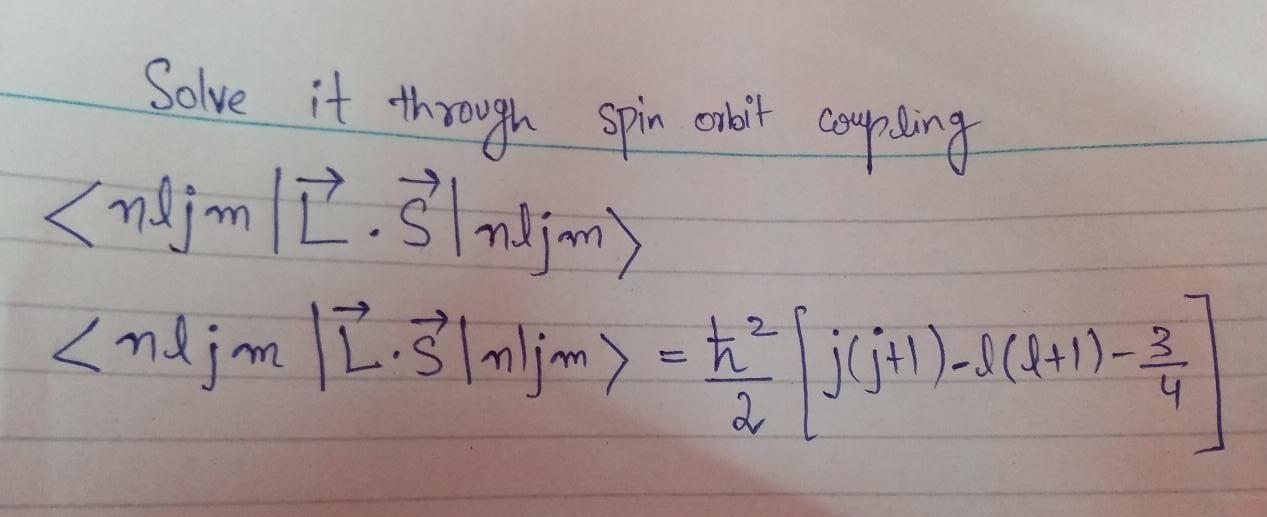 Solve it through spin orbit coupling
<nljm|L⃗.S⃗|nljm>
<nljm|L⃗.S⃗|nljm> = ħ²/2 [j(j+1)-l(l+1)-3/4]